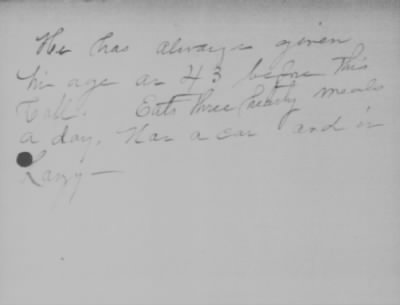 He has always given
his age as 43 before this
Call. Eats three hearty meals
a day. Has a car and is
Lazy—